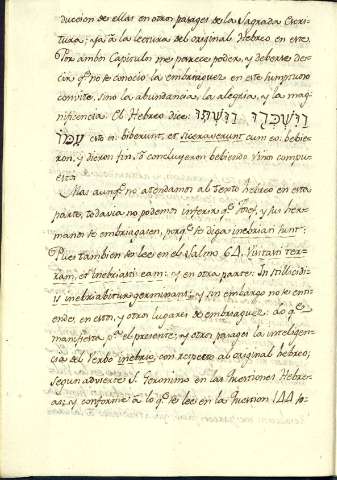 duccion de ellas en otros pasages de la Sagrada Escri-
tura; ya à la lectura del original Hebreo en este.
Por ambos Capitulos me parece poder, y deberse de-
cir qe. no se conociò la embriaguez en este sumptuoso
convite, sino la abundancia, la alegria, y la mag-
nificencia. El Hebreo dice: וישתו וישכרו
עמו esto es: biberunt, et siceraverunt cum eo: bebie-
ron, y dieron fin, ò concluyeron bebiendo vino compu-
esto.
Mas aunqe. no atendamos al Texto hebreo en esta
parte, todavia no podemos inferir qe. Josef, y sus her-
manos se embriagasen, porqe. se diga inebriati sunt:
Pues tambien se lee en el Salmo 64. Visitasti ter-
ram, et inebriasti eam: y en otra parte: In stillicidi-
is inebriabitur germinans; y sin embargo no se enti-
ende, en estos, y otros lugares de embriaguez: ao qe.
manifiesta, pa. el presente, y otros pasages la inteligen-
cia del Verbo inebrio, con respecto al original hebreo;
segun advierte S. Geronimo en las Questiones Hebre-
as; y conforme à lo qe. se lee en la Question 144 so-